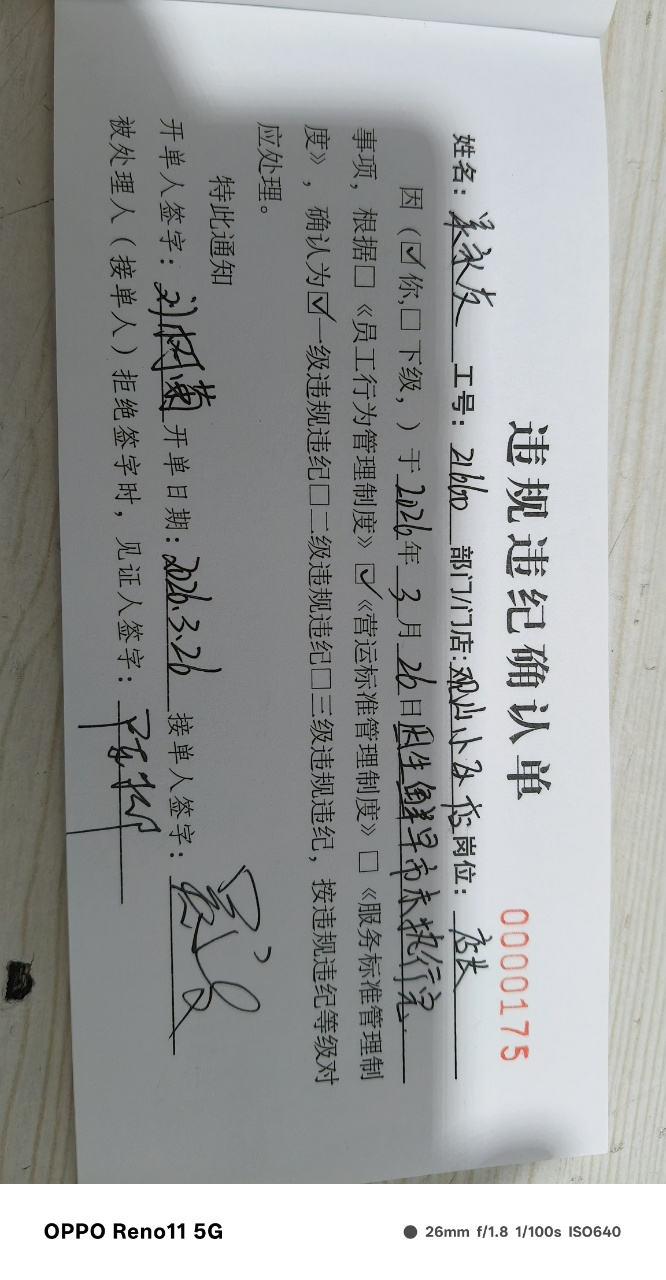 违规违纪确认单
0000175
姓名： 工号：21660 部门/门店：观山小区店 岗位：店长
因（☑你,☐下级，）于2026年3月26日因生鲜早市未执行完
事项，根据☐《员工行为管理制度》☑《营运标准管理制度》☐《服务标准管理制
度》，确认为☑一级违规违纪☐二级违规违纪☐三级违规违纪，按违规违纪等级对
应处理。
特此通知
开单人签字：刘树菊 开单日期：2026.3.26 接单人签字：
被处理人（接单人）拒绝签字时，见证人签字：
OPPO Reno11 5G
26mm f/1.8 1/100s ISO640